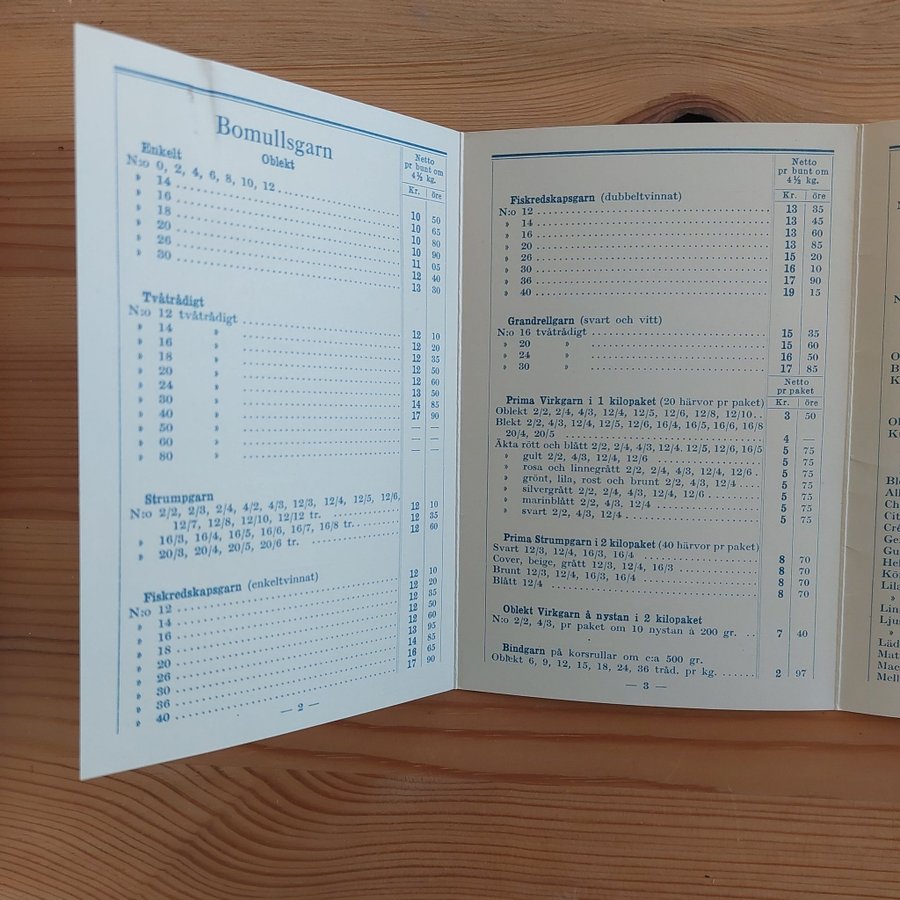 Bomullsgarn
Oblekt
Netto
pr bunt om
4½ kg.
Kr. öre
Enkelt
N:o 0, 2, 4, 6, 8, 10, 12 ... 10 50
» 14 ... 10 65
» 16 ... 10 80
» 18 ... 10 90
» 20 ... 11 05
» 26 ... 12 40
» 30 ... 13 30
Tvåtrådigt
N:o 12 tvåtrådigt ... 12 10
» 14 » ... 12 20
» 16 » ... 12 35
» 18 » ... 12 50
» 20 » ... 12 60
» 24 » ... 13 50
» 30 » ... 14 85
» 40 » ... 17 90
» 50 » ... — —
» 60 » ... — —
» 80 » ... — —
Strumpgarn
N:o 2/2, 2/3, 2/4, 4/2, 4/3, 12/3, 12/4, 12/5, 12/6,
12/7, 12/8, 12/10, 12/12 tr. ... 12 10
» 16/3, 16/4, 16/5, 16/6, 16/7, 16/8 tr. ... 12 35
» 20/3, 20/4, 20/5, 20/6 tr. ... 12 60
Fiskredskapsgarn (enkeltvinnat)
N:o 12 ... 12 10
» 14 ... 12 20
» 16 ... 12 35
» 18 ... 12 50
» 20 ... 12 60
» 26 ... 13 95
» 30 ... 14 85
» 36 ... 16 65
» 40 ... 17 90
— 2 —
Netto
pr bunt om
4½ kg.
Kr. öre
Fiskredskapsgarn (dubbeltvinnat)
N:o 12 ... 13 35
» 14 ... 13 45
» 16 ... 13 60
» 20 ... 13 85
» 26 ... 15 20
» 30 ... 16 10
» 36 ... 17 90
» 40 ... 19 15
Grandrellgarn (svart och vitt)
N:o 16 tvåtrådigt ... 15 35
» 20 » ... 15 60
» 24 » ... 16 50
» 30 » ... 17 85
Netto
pr paket
Kr. öre
Prima Virkgarn i 1 kilopaket (20 härvor pr paket)
Oblekt 2/2, 2/4, 4/3, 12/4, 12/5, 12/6, 12/8, 12/10.. 3 50
Blekt 2/2, 4/3, 12/4, 12/5, 12/6, 16/4, 16/5, 16/6, 16/8
20/4, 20/5 ... 4 —
Äkta rött och blått 2/2, 2/4, 4/3, 12/4. 12/5, 12/6, 16/5 5 75
» gult 2/2, 4/3, 12/4, 12/6 ... 5 75
» rosa och linnegrått 2/2, 2/4, 4/3, 12/4, 12/6 . 5 75
» grönt, lila, rost och brunt 2/2, 4/3, 12/4 .... 5 75
» silvergrått 2/2, 4/3, 12/4, 12/6 ... 5 75
» marinblått 2/2, 4/3, 12/4 ... 5 75
» svart 2/2, 4/3, 12/4 ... 5 75
Prima Strumpgarn i 2 kilopaket (40 härvor pr paket)
Svart 12/3, 12/4, 16/3, 16/4 ... 8 70
Cover, beige, grått 12/3, 12/4, 16/3 ... 8 70
Brunt 12/3, 12/4, 16/3, 16/4 ... 8 70
Blått 12/4 ... 8 70
Oblekt Virkgarn å nystan i 2 kilopaket
N:o 2/2, 4/3, pr paket om 10 nystan à 200 gr. .. 7 40
Bindgarn på korsrullar om c:a 500 gr.
Oblekt 6, 9, 12, 15, 18, 24, 36 tråd. pr kg. ...... 2 97
— 3 —